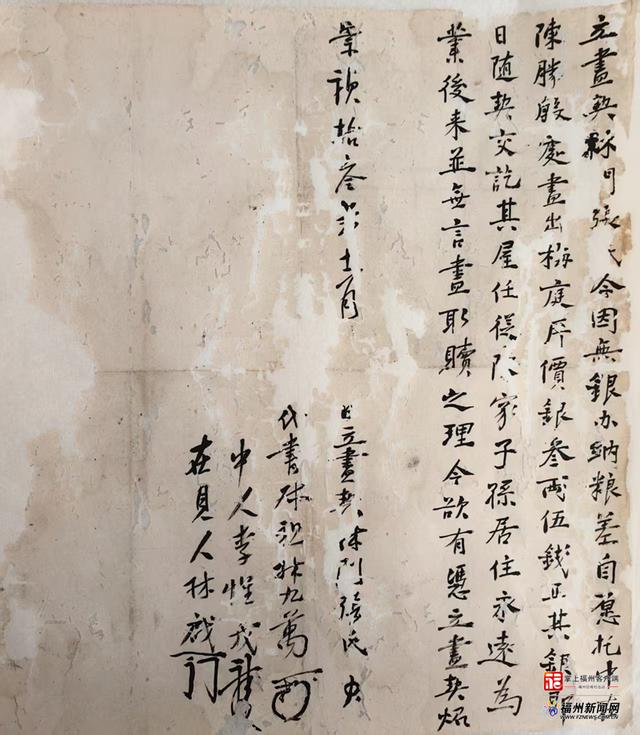 立盡契林門張氏今因無銀办納粮差自愿托中
陳勝殷處盡出梅庭厈價銀叁両伍錢正其銀即
日随契交訖其屋任從陈家子孫居住永遠為
業後来並無言盡取贖之理今欲有憑立盡契炤
崇禎拾叁年十一月
日立盡契林門張氏
代書
中人李
在見人林
掌上福州客户端
福州新闻网
WWW.FZNEWS.COM.CN